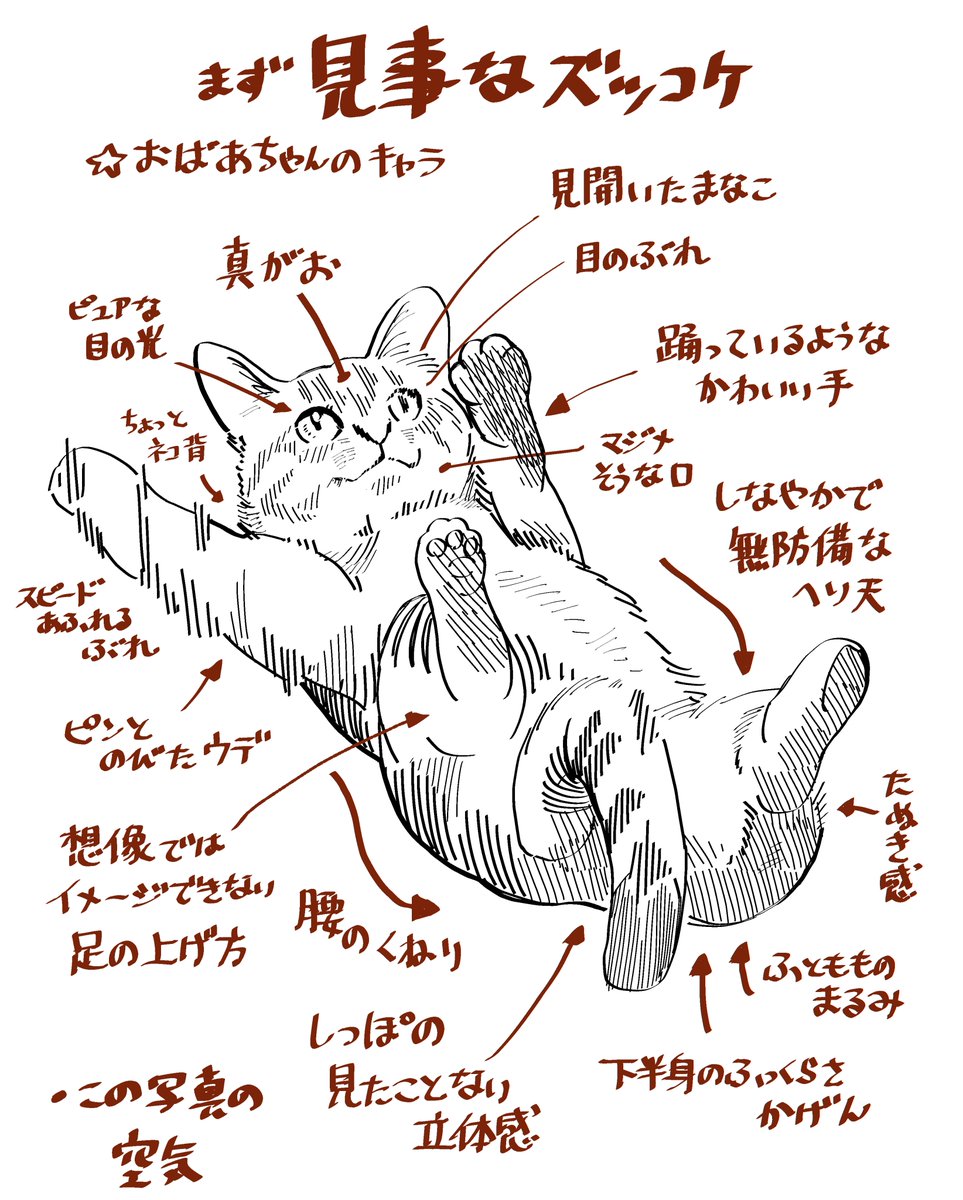 まず見事なズッコケ
☆おばあちゃんのキャラ
見開いたまなこ
真がお
目のぶれ
ピュアな
目の光
踊っているような
かわいい手
ちょっと
ネコ背
マジメ
そうな口
しなやかで
無防備な
ヘソ天
スピード
あふれる
ぶれ
ピンと
のびたウデ
たぬき感
想像では
イメージできない
足の上げ方
腰のくねり
ふっともも の
まるみ
しっぽの
見たことない
立体感
下半身のふっくらさ
かげん
・この写真の
空気